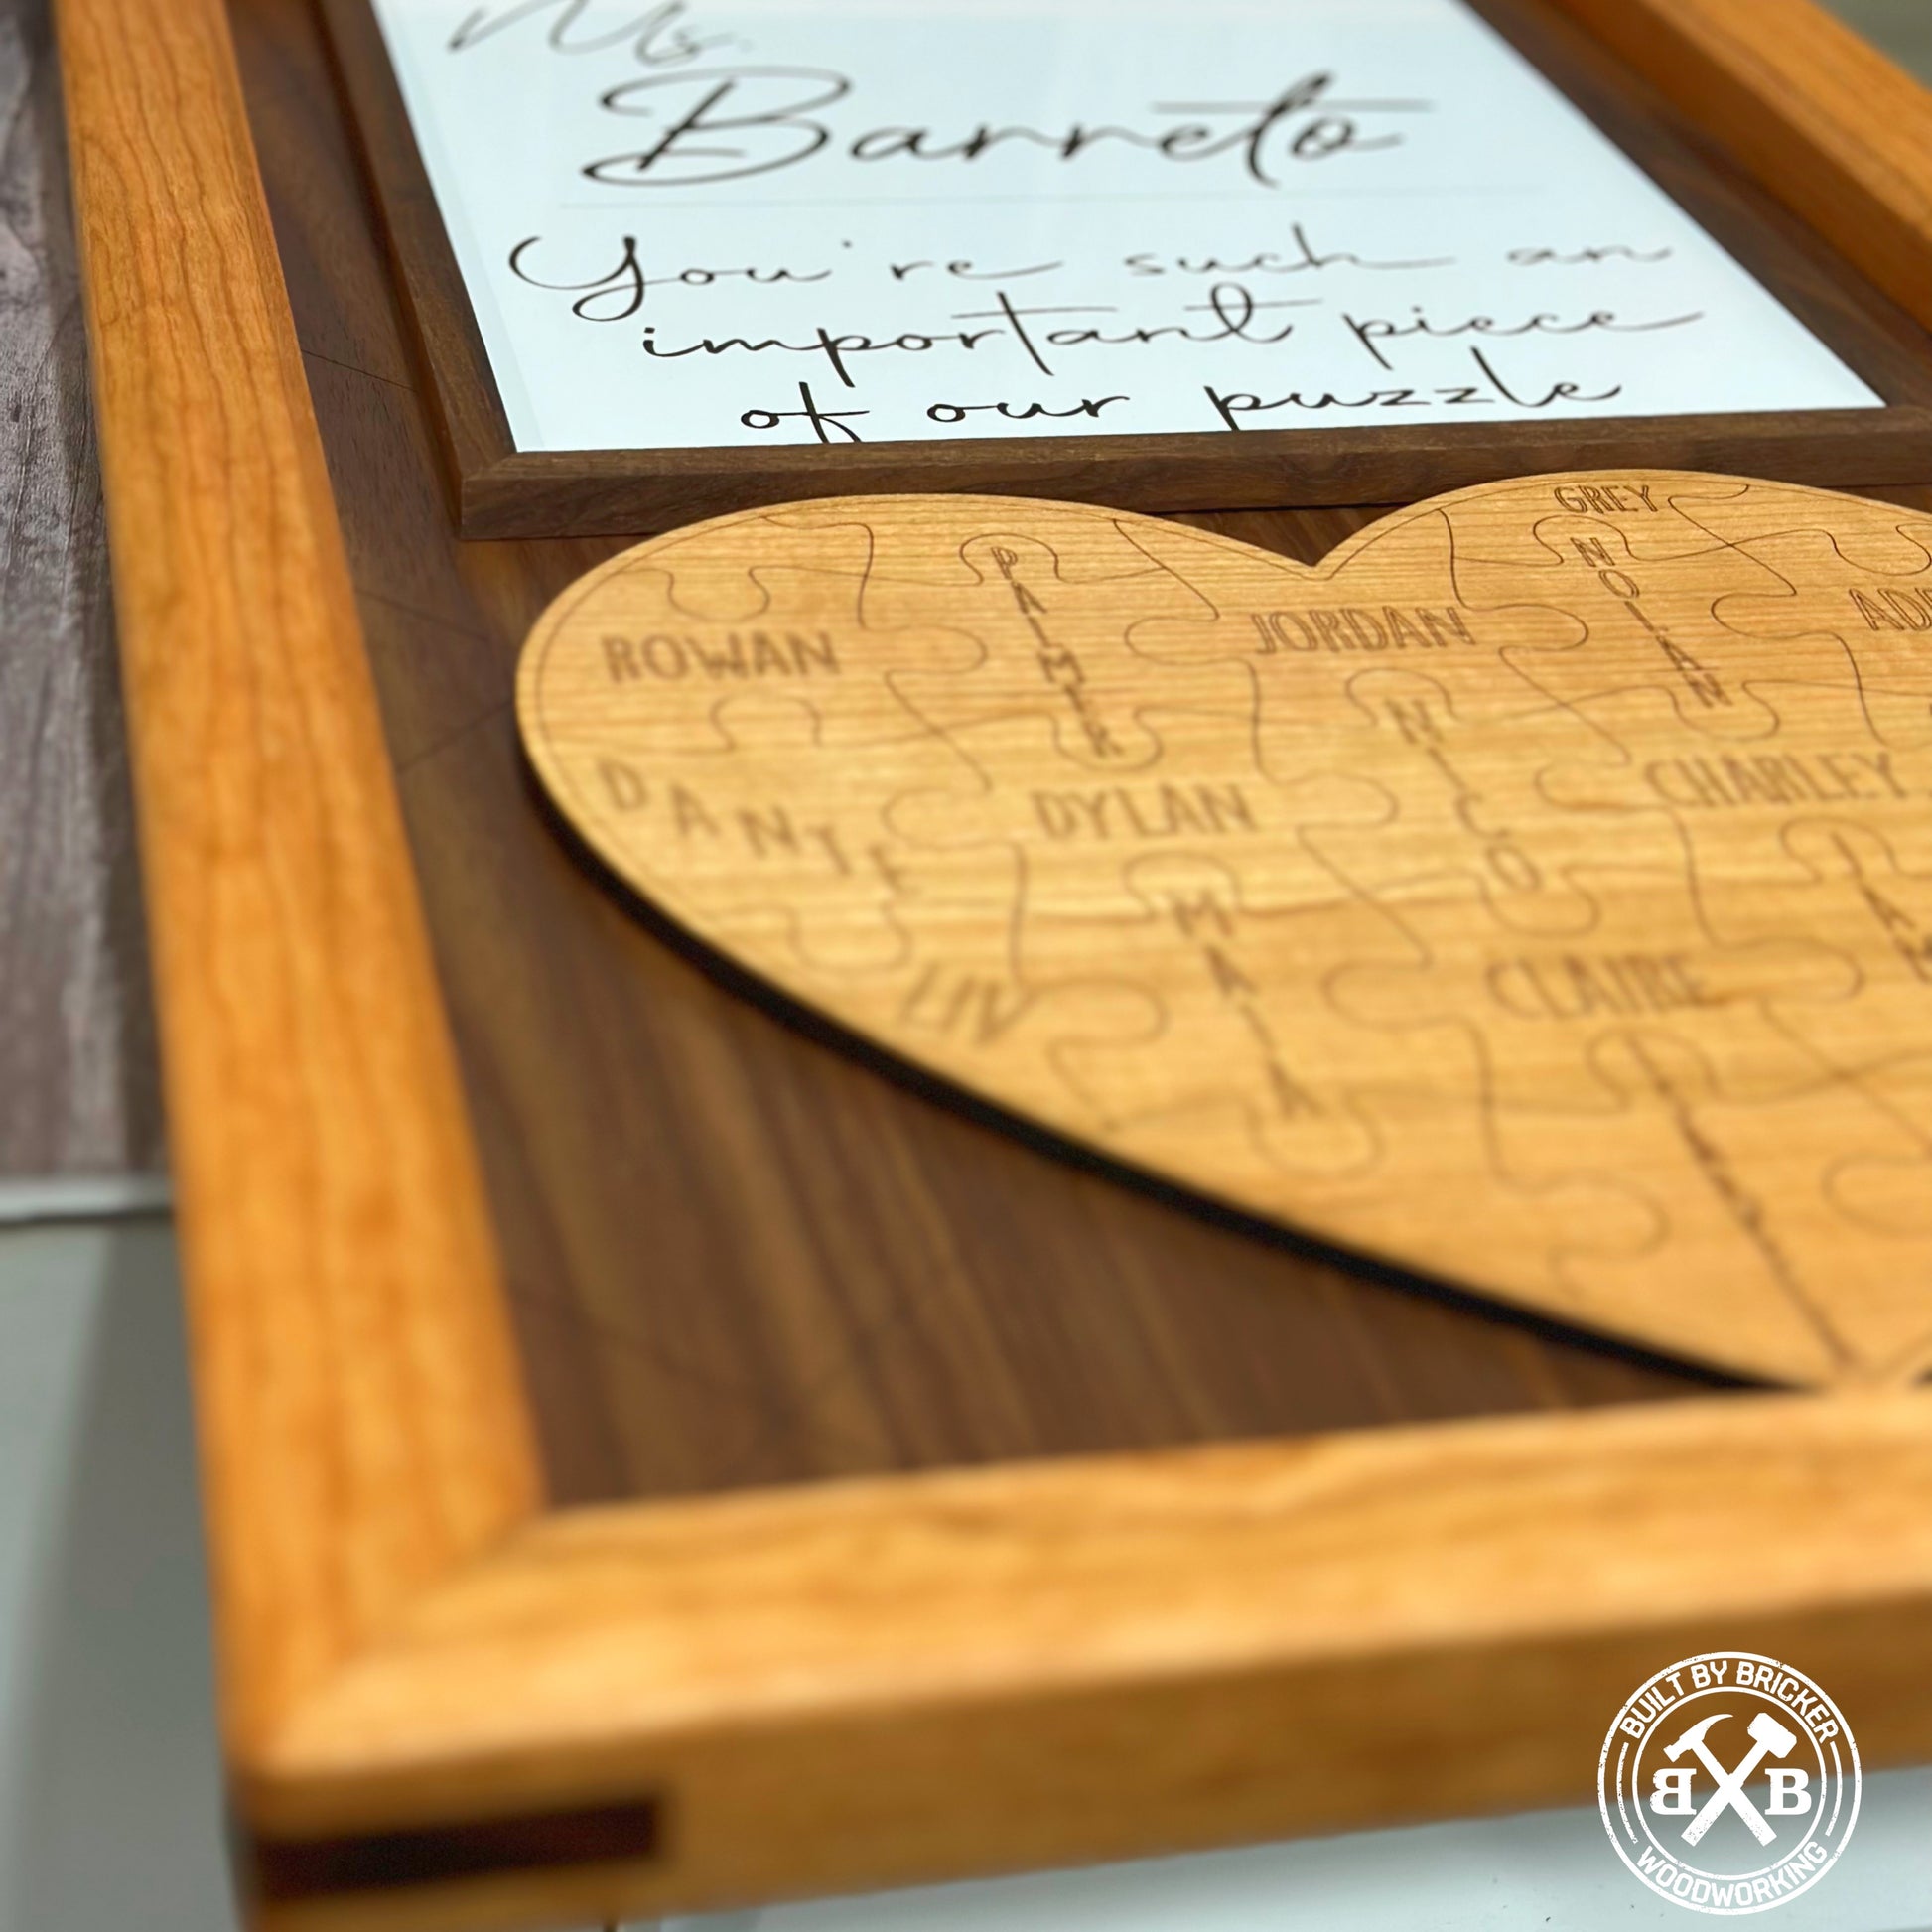 Ms.
Barreto
You're such an
important piece
of our puzzle
GREY
PALMER
NOLAN
ROWAN
JORDAN
DANTE
DYLAN
NICO
CHARLEY
LIV
MAIA
CLAIRE
BUILT BY BRICKER
BXB
WOODWORKING